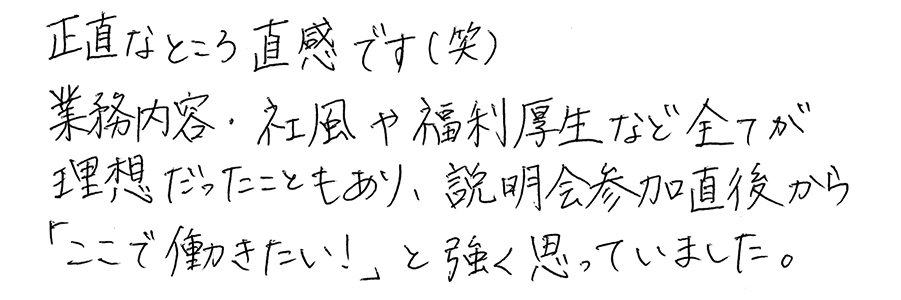 正直なところ直感です(笑)
業務内容・社風や福利厚生など全てが
理想だったこともあり、説明会参加直後から
「ここで働きたい!」と強く思っていました。